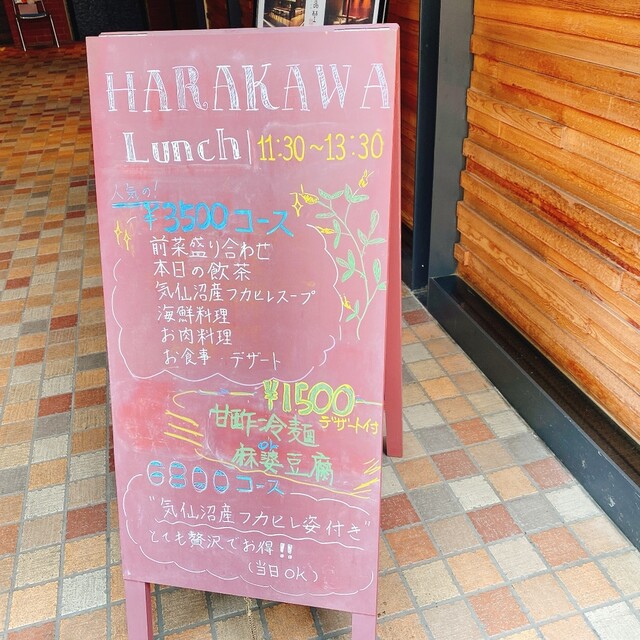 HARAKAWA
Lunch | 11:30～13:30
人気の!
¥3500コース
前菜盛り合わせ
本日の飲茶
気仙沼産フカヒレスープ
海鮮料理
お肉料理
お食事・デザート
¥1500
デザート付
甘酢冷麺
麻婆豆腐
6800コース
"気仙沼産フカヒレ姿付き"
とても贅沢でお得!!
(当日OK)